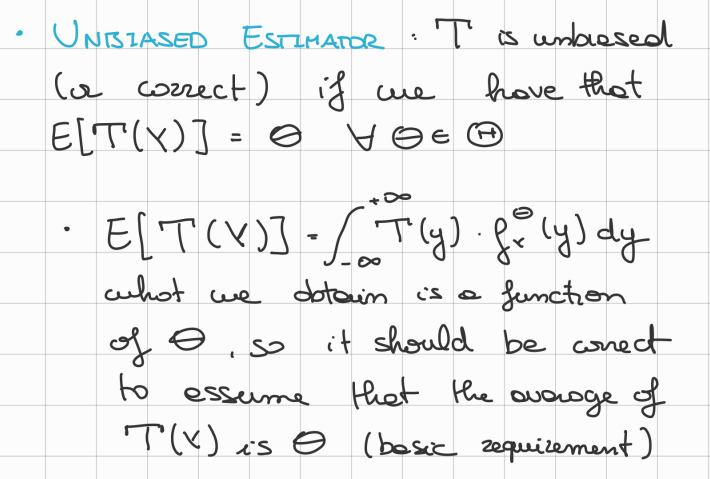 • UNBIASED ESTIMATOR : T is unbiased
(or correct) if we have that
E[T(Y)] = θ ∀ θ ∈ Θ
• E[T(Y)] = ∫_{-∞}^{+∞} T(y) · f_Y^θ (y) dy
what we obtain is a function
of θ, so it should be correct
to assume that the average of
T(Y) is θ (basic requirement)